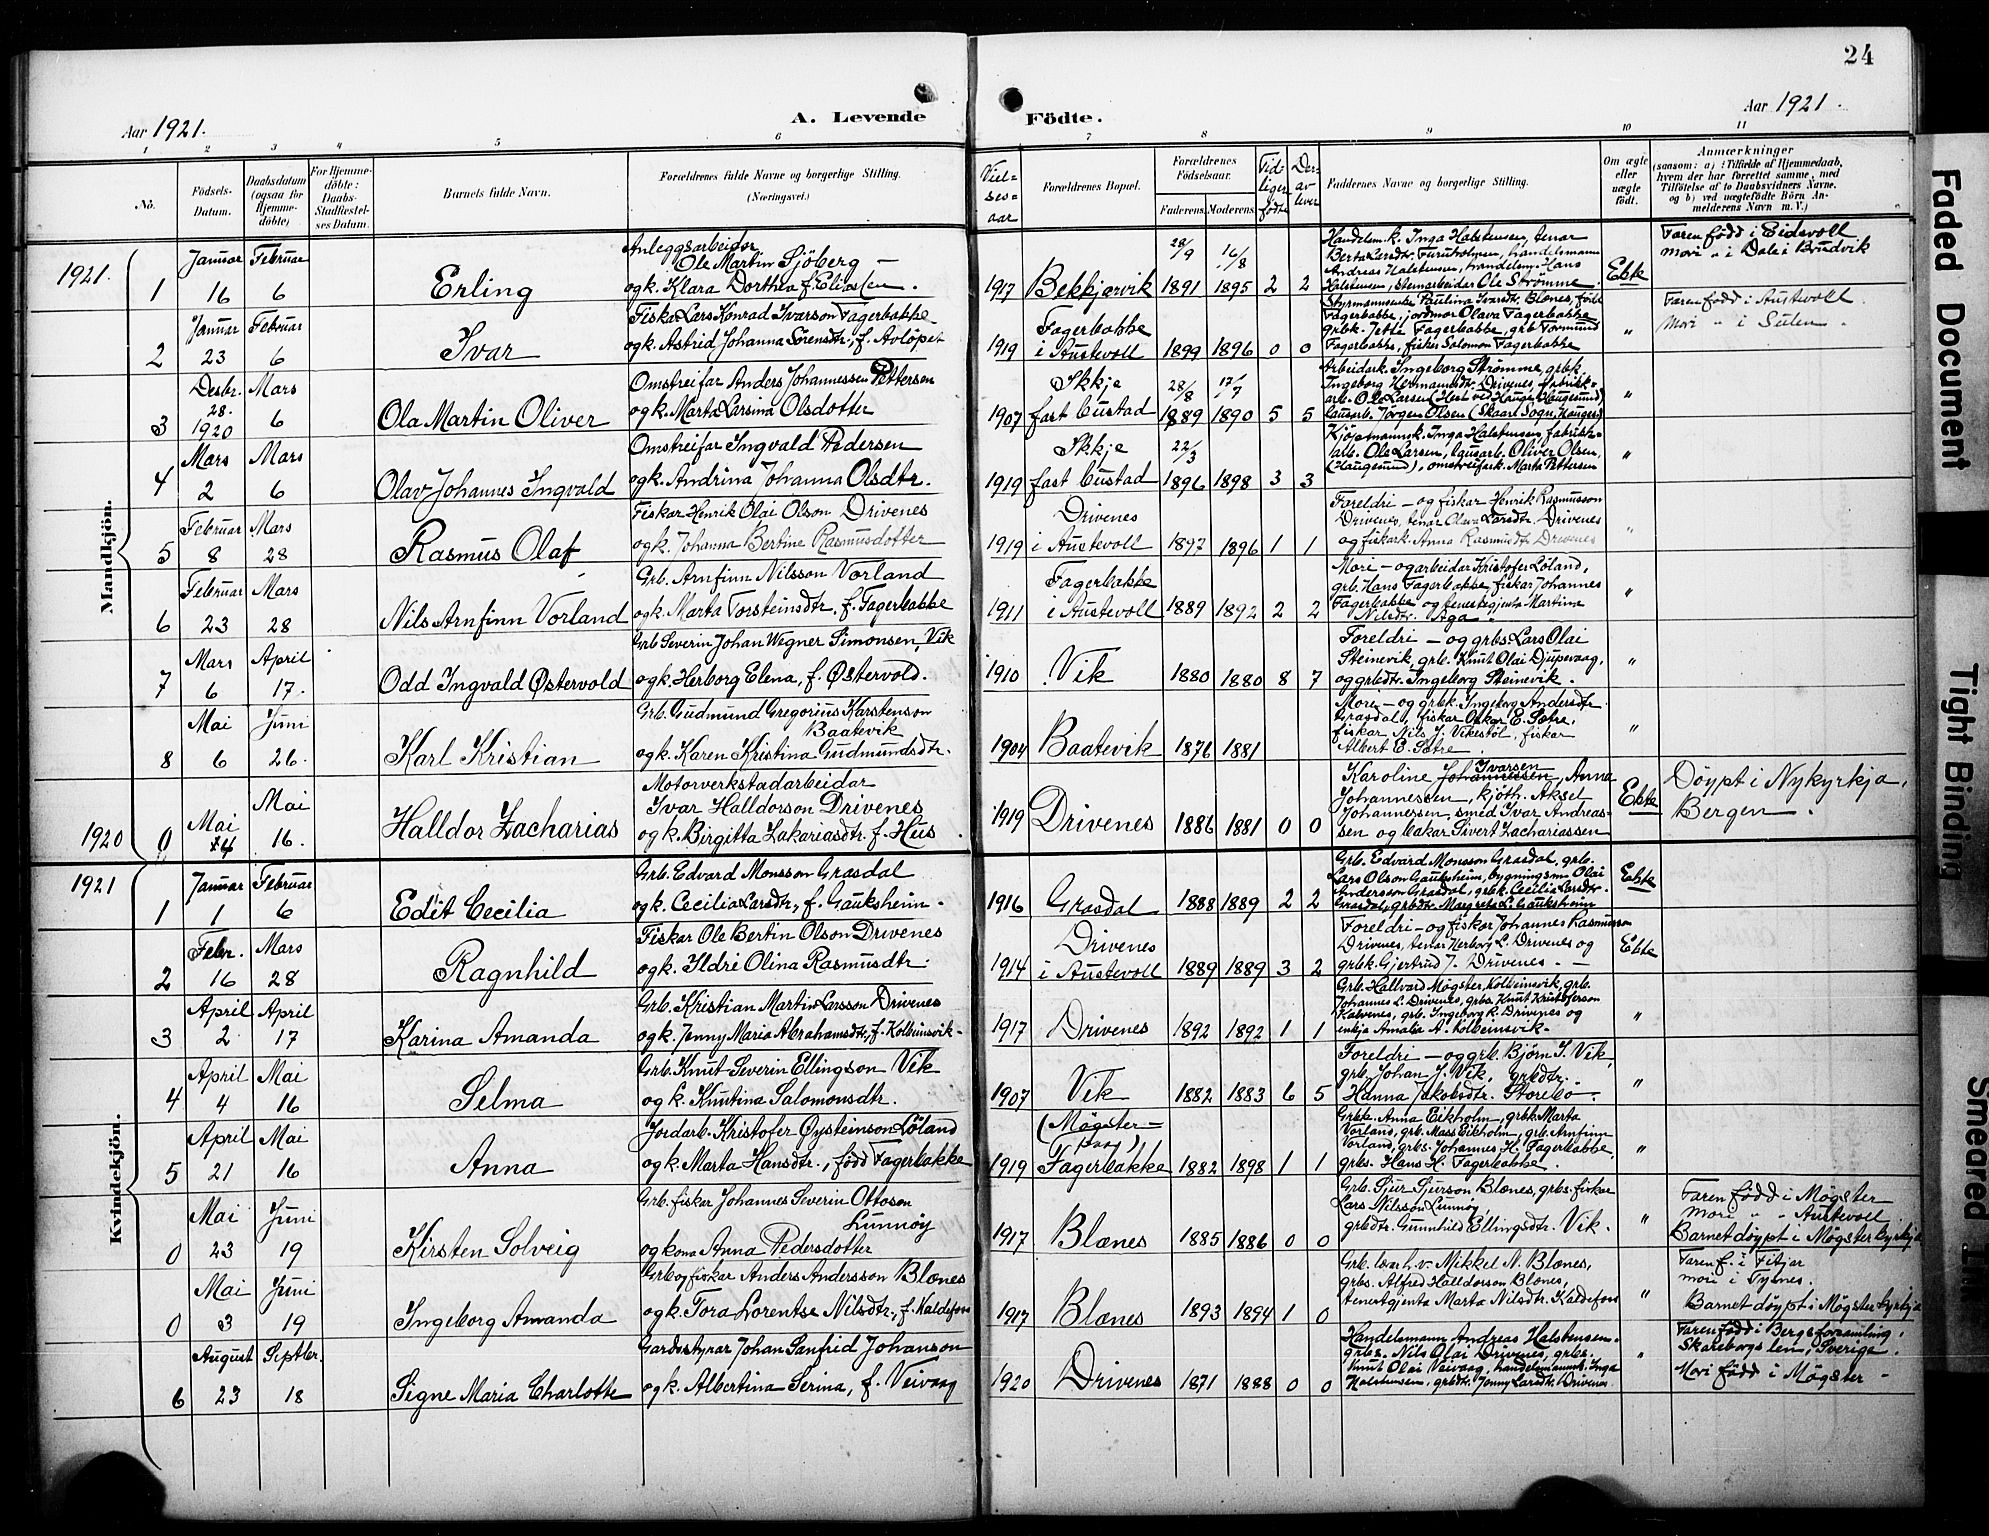 24
Aar 1921.
A. Levende
Födte.
Aar 1921.
1 2 3 4 5 6 7 8 9 10 11
No.
Födsels-Datum.
Daabsdatum (ogsaa for Hjemme-döbte)
For Hjemme-döbte: Daabs-Stadfæstel-ses Datum.
Barnets fulde Navn.
Forældrenes fulde Navne og borgerlige Stilling.
(Næringsvei.)
Viel-ses-aar
Forældrenes Bopæl.
Forældrenes Födselsaar.
Faderens. Moderens.
Tid-liger födte
Der-av lever
Faddernes Navne og borgerlige Stilling.
Om ægte eller uægte födt.
Anmærkninger
(saasom: a) i Tilfælde af Hjemmedaab,
hvem der har forrettet samme, med
Tilföielse af to Daabsvidners Navne,
og b) ved uægtefödte Börn An-
melderens Navn m. V.)
Mandkjön.
1921.
1
Januar 16
Februar 6
Erling
Anleggsarbeidar
Ole Martin Sjöberg —
og k. Klara Dorthea f. Eliassen
1917
Bekkjarvik
28/9 1891
16/8 1895
2 2
Handelsm.k. Inga Halstensen, tenar
Berta Larsdtr. Furuholmen, handelsmann
Andreas Halstensen, handelsm. Hans
Halstensen, Stemarbeidar Ole Strømme
Ekte
Faren född i Eidsvoll
Mori " i Dale i Bruvik
2
Januar 23
Februar 6
Ivar
Fiskar Lars Konrad Ivarson Fagerbakke
og k. Astrid Johanna Sørensdtr., f.
1919
Fagerbakke
i Austevoll
1899 1896 0 0
Paulina Ivarsdtr. Blænes, född
Fagerbakke, jordmor Olava Fagerbakke
grbk. Jetta Fagerbakke, grb. Tormund
Fagerbakke, fiskar Salomon Fagerbakke
"
Faren född i Austevoll
Mori " i Sulen
3
Desbr. 28. 1920
Mars 6
Ola Martin Oliver
Omstreifar Anders Johannessen Pettersen
og k. Marta Larsina Olsdotter
1907
Skkje
fast bustad
28/8 1889
17/7 1890
5 5
Arbeidark. Ingeborg Strømme, grbk.
Ingeborg Hermannsdtr. Drivenes, fabrikk-
arb. Ole Larsen (Hest ved Hauge, Haugesund)
lausarb. Jørgen Olsen (Skaare Sogn, Hauges.)
"
4
Mars 2
Mars 6
Olav Johannes Ingvald
Omstreifar Ingvald Pedersen
og k. Andrina Johanna Olsdtr.
1919
Skkje
fast bustad
22/3 1896
1898 3 3
Kjøpmannsk. Inga Halstensen, fabrikk-
arb. Ole Larsen, lausarb. Oliver Olsen,
(Haugesund), omstreifark. Marta Pettersen
"
5
Februar 8
Mars 28
Rasmus Olaf
Fiskar Henrik Olai Olson Drivenes
og k. Johanna Bertine Rasmusdotter
1919
Drivenes
i Austevoll
1897 1896 1 1
Foreldri — og fiskar Henrik Rasmusson
Drivenes, tenar Olava Larsdtr. Drivenes
og fiskark. Anna Rasmusdtr. Drivenes
"
6
Februar 23
Mars 28
Nils Arnfinn Vorland
Grb. Arnfinn Nilsson Vorland
og k. Marta Torsteinsdtr., f. Fagerbakke
1911
Fagerbakke
i Austevoll
1889 1892 2 2
Mori — og arbeidar Kristofer Løland,
grb. Hans Fagerbakke, fiskar Johannes
Fagerbakke og tenestegjenta Martina
Nilsdtr. Aga
"
7
Mars 6
April 17.
Odd Ingvald Østervold
Grb. Severin Johan Wegner Simonsen, Vik
og k. Herborg Elena, f. Østervold.
1910
Vik
1880 1880 8 7
Foreldri — og grbs. Lars Olai
Steinevik, grb. Knut Olai Djupevaag,
og grbdtr. Ingeborg Steinevik.
"
8
Mai 6
Juni 26.
Karl Kristian
Grb. Gudmund Gregorius Karstenson
Baatevik
og k. Karen Kristina Gudmundsdtr.
1904
Baatevik
1876 1881
Mori — og grbk. Ingeborg Andersdtr.
Grasdal, fiskar Oskar E. Sætre,
fiskar Nils J. Vikestøl, fiskar
Albert E. Sætre.
"
1920
0
Mai 14
Mai 16.
Halldor Zacharias
Motorverkstadarbeidar
Ivar Halldorson Drivenes
og k. Birgitta Zakariasdtr. f. Hus
1919
Drivenes
1886 1881 0 0
Ivarsen
Karoline Johannessen, Anna
Johannessen, kjøtth. Aksel
Johannessen, smed Ivar Andreas-
sen og bakar Sivert Zachariassen
Ekte
Döypt i Nykyrkja,
Bergen.
Kvindekjön.
1921
1
Januar 1
Februar 6
Edit Cecilia
Grb. Edvard Monsson Grasdal
og k. Cecilia Larsdtr., f. Gauksheim.
1916
Grasdal
1888 1889 2 2
Grb. Edvard Monsson Grasdal, grb.
Lars Olson Gauksheim, bygningsm. Olai
Andersson Grasdal, grbk. Cecilia Larsdtr.
Grasdal, grbdtr. Margreta L. Gauksheim
Ekte
2
Febr. 16
Mars 28
Ragnhild
Fiskar Ole Bertin Olson Drivenes
og k. Ildri Olina Rasmusdtr.
1914
Drivenes
i Austevoll
1889 1889 3 2
Foreldri — og fiskar Johannes Rasmusson
Drivenes, tenar Herborg L. Drivenes og
grbk. Gjertrud J. Drivenes. —
Ekte
3
April 2
April 17
Karina Amanda
Grb. Kristian Martin Larsson Drivenes
og k. Jenny Maria Abrahamsdtr., f. Kolbeinsvik.
1917
Drivenes
1892 1892 1 1
Grb. Hallvard Møgster, Kolbeinsvik, grb.
Johannes L. Drivenes, grbs. Knut Kristoferson
Kalvenes, grb. Ingeborg K. Drivenes og
enkja Amalia A. Kolbeinsvik.
"
4
April 4
Mai 16
Selma
Grb. Knut Severin Ellingson Vik
og k. Kristina Salomonsdtr.
1907
Vik
1882 1883 6 5
Foreldri — og grb. Bjørn J. Vik,
grb. Johan J. Vik, grbdtr.
Hanna Jakobsdtr. Storebø.
"
5
April 21
Mai 16
Anna
Jordarb. Kristofer Øysteinson Løland
og k. Marta Hansdtr., född Fagerbakke
1919
(Møgster-
Fagerbakke
1882 1898 1 1
Grbk. Anna Eikholm, grbk. Marta
Vorland, grb. Mass Eikholm, grb. Arnfinn
Vorland, grbs. Johannes H. Fagerbakke,
grbs. Hans H. Fagerbakke.
"
0
Mai 23
Juni 19
Kirsten Solveig
Grb. fiskar Johannes Severin Ottoson
Lunnøy
og kona Anna Pedersdotter
1917
Blænes
1885 1886 0 0
Grb. Sjur Sjurson Blænes, grbs. fiskar
Lars Nilsson Lunnøy,
grbdtr. Gunnhild Ellingsdtr. Vik.
"
Faren född i Møgster
Mori " " Austevoll
Barnet döypt i Møgster kyrkja
0
Mai 3
Juni 19
Ingeborg Amanda
Grb. og fiskar Anders Andersson Blænes
og k. Tora Lorentse Nilsdtr., f. Kaldefoss
1917
Blænes
1893 1894 1 0
Grb. lærar h.v. Mikkel N. Blænes,
grbs. Alfred Halldorson Blænes,
tenestgjenta Marta Nilsdtr. Kaldefoss
"
Faren f. i Fitjar
mori i Tysnes.
Barnet döypt i Møgster kyrkja
6
August 23
Septbr. 18
Signe Maria Charlotte
Gardsstyrar Johan Sanfrid Johanson
og k. Albertina Serina, f. Veivaag
1920
Drivenes
1871 1888 0 0
Handelsmann Andreas Halstensen,
grbs. Nils Olai Drivenes, grbs.
Knut Olai Veivaag, handelsmannsk. Inga
Halstensen, grbdtr. Jenny Larsdtr. Drivenes.
"
Faren född i Bergs forsamling,
Skaraborgs len, Sverige.
Mori född i Møgster
Faded Document
Tight Binding
Smeared Ink